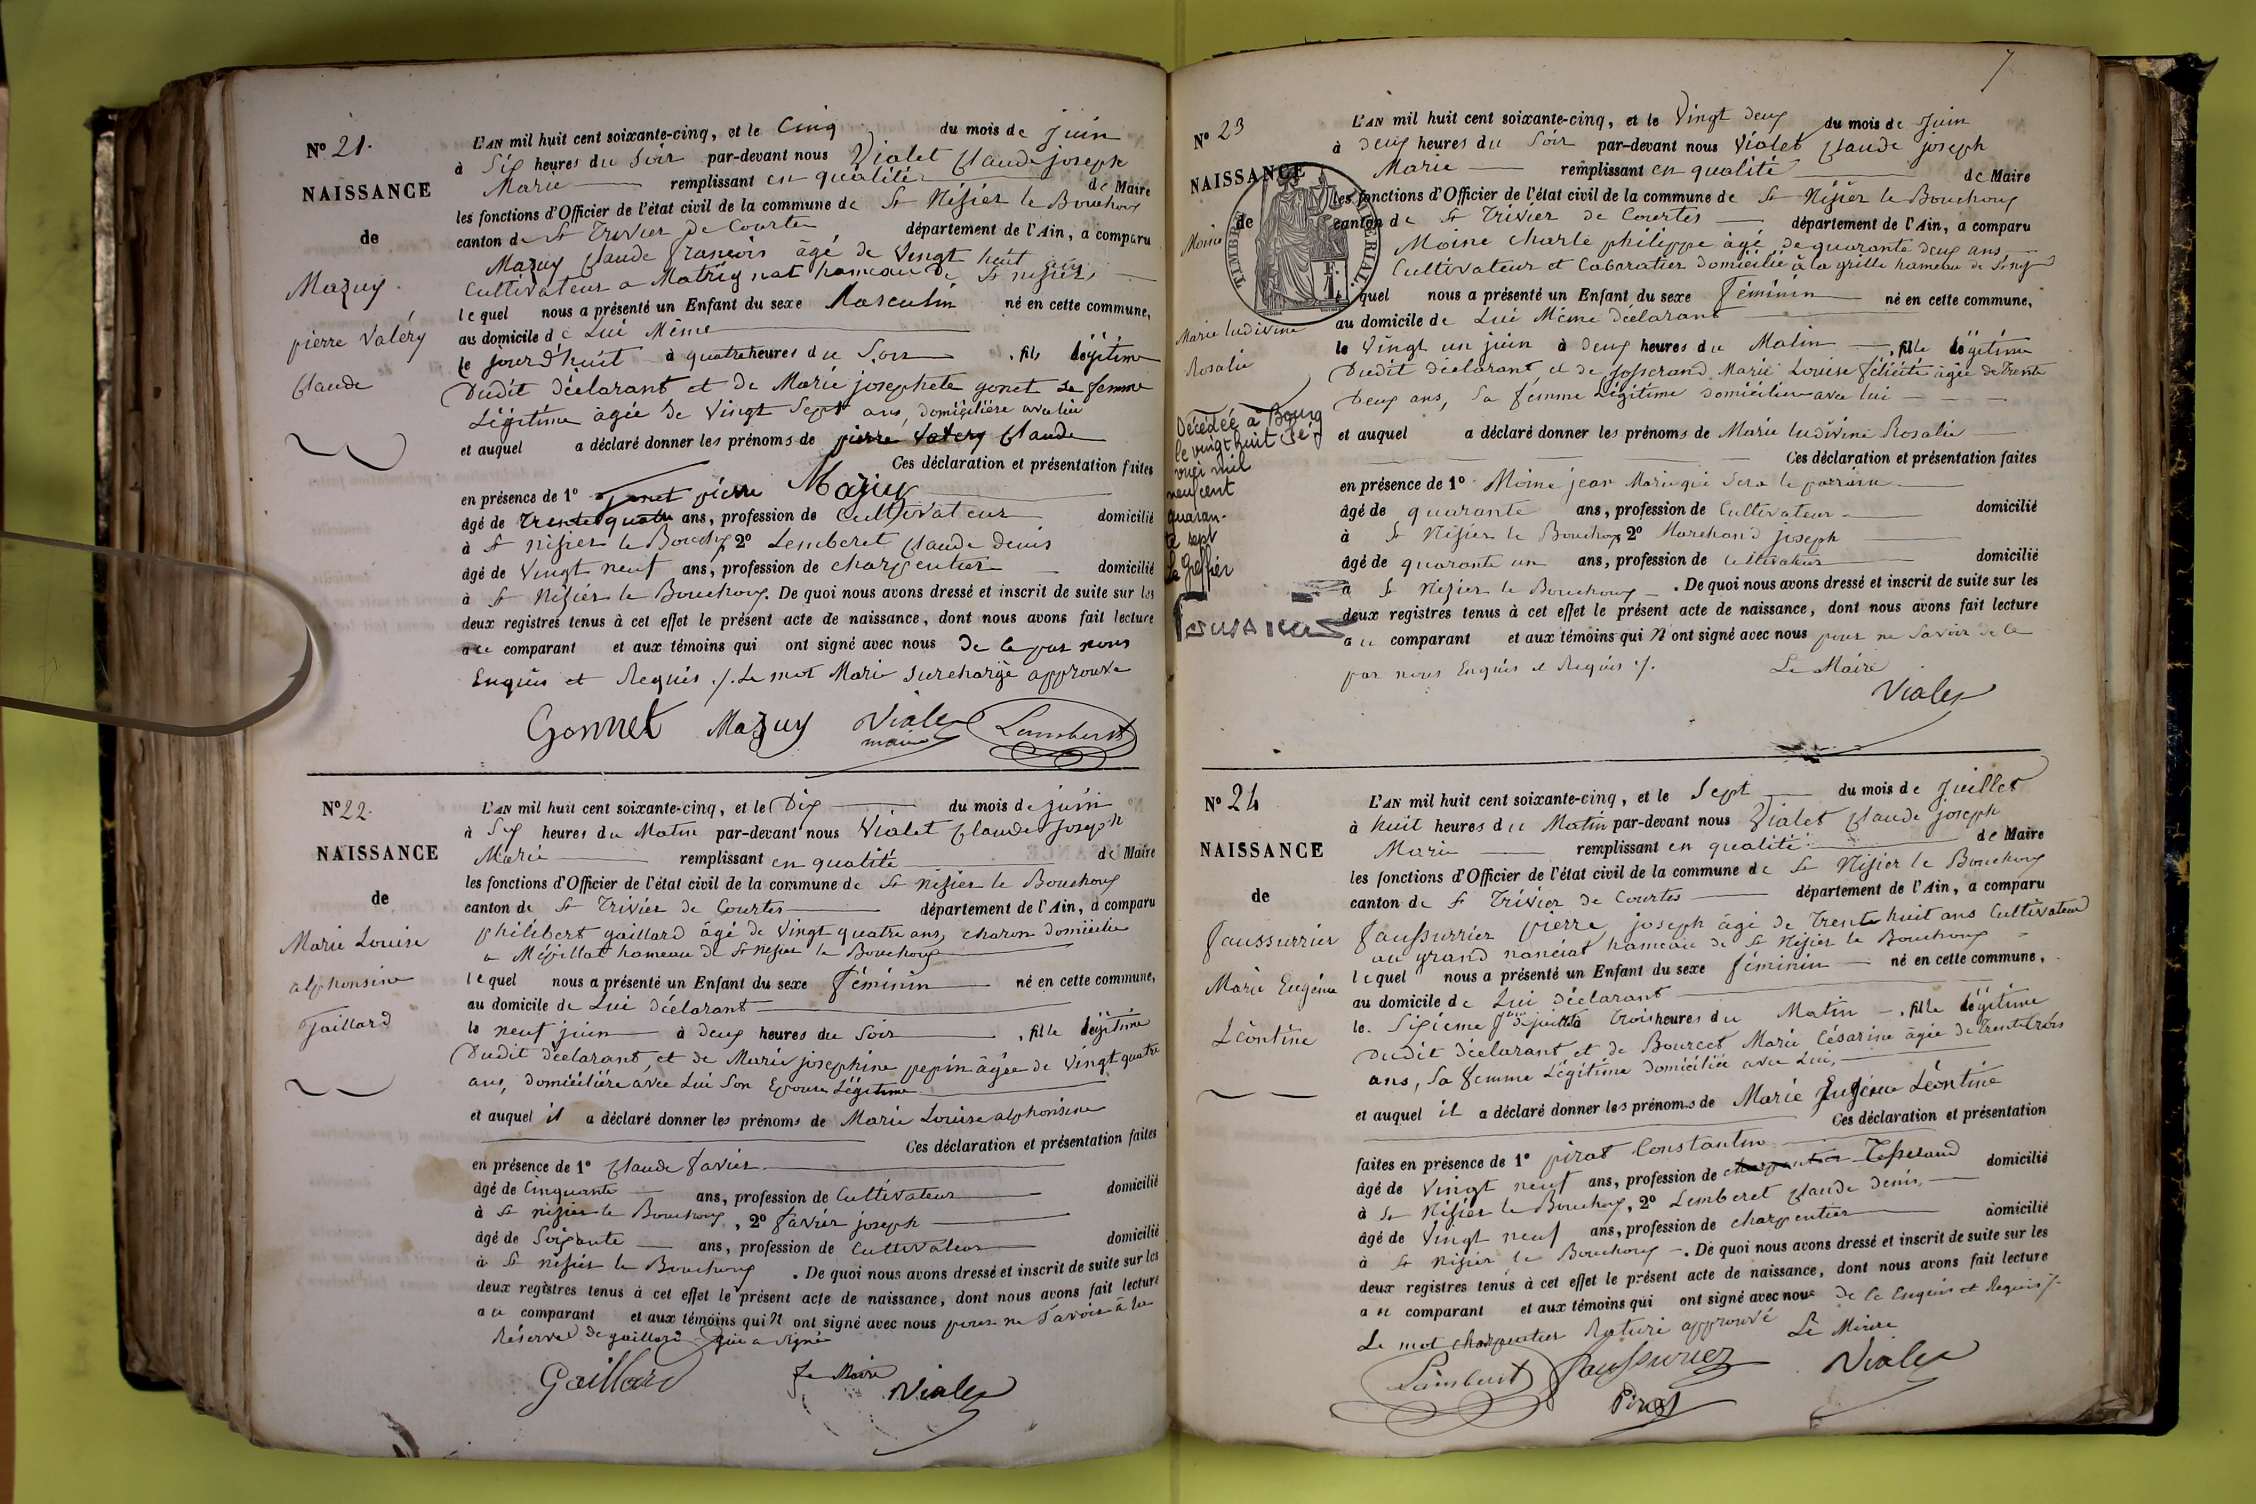 N° 21.
NAISSANCE
de
Mazuy
pierre Valéry
Claude
L'AN mil huit cent soixante-cinq, et le Cinq du mois de juin
à Six heures du Soir par-devant nous Vialet Claude joseph
Marie remplissant en qualité de Maire
les fonctions d'Officier de l'état civil de la commune de St Nisier le Bouchoux
canton de St Trivier de Courtes département de l'Ain, a comparu
Mazuy Claude François âgé de Vingt huit ans
Cultivateur a Matrignat hameau de St nisier
lequel nous a présenté un Enfant du sexe Masculin né en cette commune,
au domicile de Lui Même
le jour d'huit à quatre heures du Soir , fils légitime
Dudit déclarant et de Marie josephete gonet sa femme
Légitime âgée de Vingt Sept ans, domiciliére avec lui
et auquel a déclaré donner les prénoms de pierre Valery Claude
Ces déclaration et présentation faites
en présence de 1° gonet pierre Mazuy
âgé de trente quatre ans, profession de Cultivateur domicilié
à St nisier le Bouchoux 2° Lemberet Claude denis
âgé de Vingt neuf ans, profession de charpentier domicilié
à St Nisier le Bouchoux. De quoi nous avons dressé et inscrit de suite sur les
deux registres tenus à cet effet le présent acte de naissance, dont nous avons fait lecture
a ce comparant et aux témoins qui ont signé avec nous de ce par nous
Enquis et Requis ./. Le mot Marie surchargé approuvé
Gonnet Mazuy Vialet Lambert
maire
N° 22.
NAISSANCE
de
Marie Louise
alphonsine
Gaillard
L'AN mil huit cent soixante-cinq, et le Dix du mois de juin
à Six heures du Matin par-devant nous Vialet Claude Joseph
Marie remplissant en qualité de Maire
les fonctions d'Officier de l'état civil de la commune de St nisier le Bouchoux
canton de St Trivier de Courtes département de l'Ain, a comparu
philibert gaillard âgé de Vingt quatre ans, charon domicilié
a Mépillat hameau de St nisier le Bouchoux
lequel nous a présenté un Enfant du sexe féminin né en cette commune,
au domicile de Lui déclarant
le neuf juin à deux heures du Soir , fille légitime
Dudit déclarant, et de Marie josephine pepin âgée de Vingt quatre
ans, domiciliére avec Lui Son Epouse Légitime
et auquel il a déclaré donner les prénoms de Marie Louise alphonsine
Ces déclaration et présentation faites
en présence de 1° Claude favier
âgé de Cinquante ans, profession de Cultivateur domicilié
à St nisier le Bouchoux, 2° favier joseph
âgé de Soixante ans, profession de Cultivateur domicilié
à St nisier le Bouchoux. De quoi nous avons dressé et inscrit de suite sur les
deux registres tenus à cet effet le présent acte de naissance, dont nous avons fait lecture
a ce comparant et aux témoins qui N ont signé avec nous pour ne Savoir à la
Réserve de gaillard qui a signé
Gaillard Le Maire Vialet
7
N° 23
NAISSANCE
de
Moine
Marie ludivine
Rosalie
Décédée à Bourg
le vingt huit
mil
neuf cent
quaran-
te sept
Le Greffier
TIMBRE IMPÉRIAL
L'AN mil huit cent soixante-cinq, et le Vingt deux du mois de Juin
à deux heures du Soir par-devant nous Vialet Claude joseph
Marie remplissant en qualité de Maire
les fonctions d'Officier de l'état civil de la commune de St Nisier le Bouchoux
canton de St Trivier de Courtes département de l'Ain, a comparu
Moine Charle philippe âgé de quarante deux ans
Cultivateur et Cabaratier domicilié à la grille hameau de
lequel nous a présenté un Enfant du sexe féminin né en cette commune,
au domicile de Lui Même déclarant
le Vingt un juin à deux heures du Matin , fille légitime
Dudit déclarant et de josserand Marie Louise félicité âgée de trente
Deux ans, Sa femme Légitime domiciliée avec lui
et auquel a déclaré donner les prénoms de Marie ludivine Rosalie
Ces déclaration et présentation faites
en présence de 1° Moine jean Marie qui Sera le parrain
âgé de quarante ans, profession de Cultivateur domicilié
à St Nisier le Bouchoux 2° Marchand joseph
âgé de quarante un ans, profession de Cultivateur domicilié
à St Nisier le Bouchoux. De quoi nous avons dressé et inscrit de suite sur les
deux registres tenus à cet effet le présent acte de naissance, dont nous avons fait lecture
a ce comparant et aux témoins qui N ont signé avec nous pour ne Savoir de ce
par nous Enquis et Requis ./. Le Maire
Vialet
N° 24
NAISSANCE
de
faussurrier
Marie Eugénie
Léontine
L'AN mil huit cent soixante-cinq, et le Sept du mois de Juillet
à huit heures du Matin par-devant nous Vialet Claude joseph
Marie remplissant en qualité de Maire
les fonctions d'Officier de l'état civil de la commune de St Nisier le Bouchoux
canton de St Trivier de Courtes département de l'Ain, a comparu
faussurrier pierre joseph âgé de Trente huit ans Cultivateur
au grand nanciat hameau de St Nisier le Bouchoux
lequel nous a présenté un Enfant du sexe féminin né en cette commune,
au domicile de Lui déclarant
le Sixième jour de juillet à trois heures du Matin , fille légitime
Dudit déclarant et de Bourcet Marie Césarine âgée de trente trois
ans, Sa femme Légitime domiciliée avec Lui,
et auquel il a déclaré donner les prénoms de Marie Eugénie Léontine
Ces déclaration et présentation
faites en présence de 1° pirat Constantin
âgé de Vingt neuf ans, profession de charpentier Tisserand domicilié
à St Nisier le Bouchoux, 2° Lemberet Claude denis
âgé de Vingt neuf ans, profession de charpentier domicilié
à St Nisier le Bouchoux. De quoi nous avons dressé et inscrit de suite sur les
deux registres tenus à cet effet le présent acte de naissance, dont nous avons fait lecture
a ce comparant et aux témoins qui ont signé avec nous de ce Enquis et Requis ./.
Le mot charpentier Raturé approuvé Le Maire
Lambert faussurier Vialet
Pirat